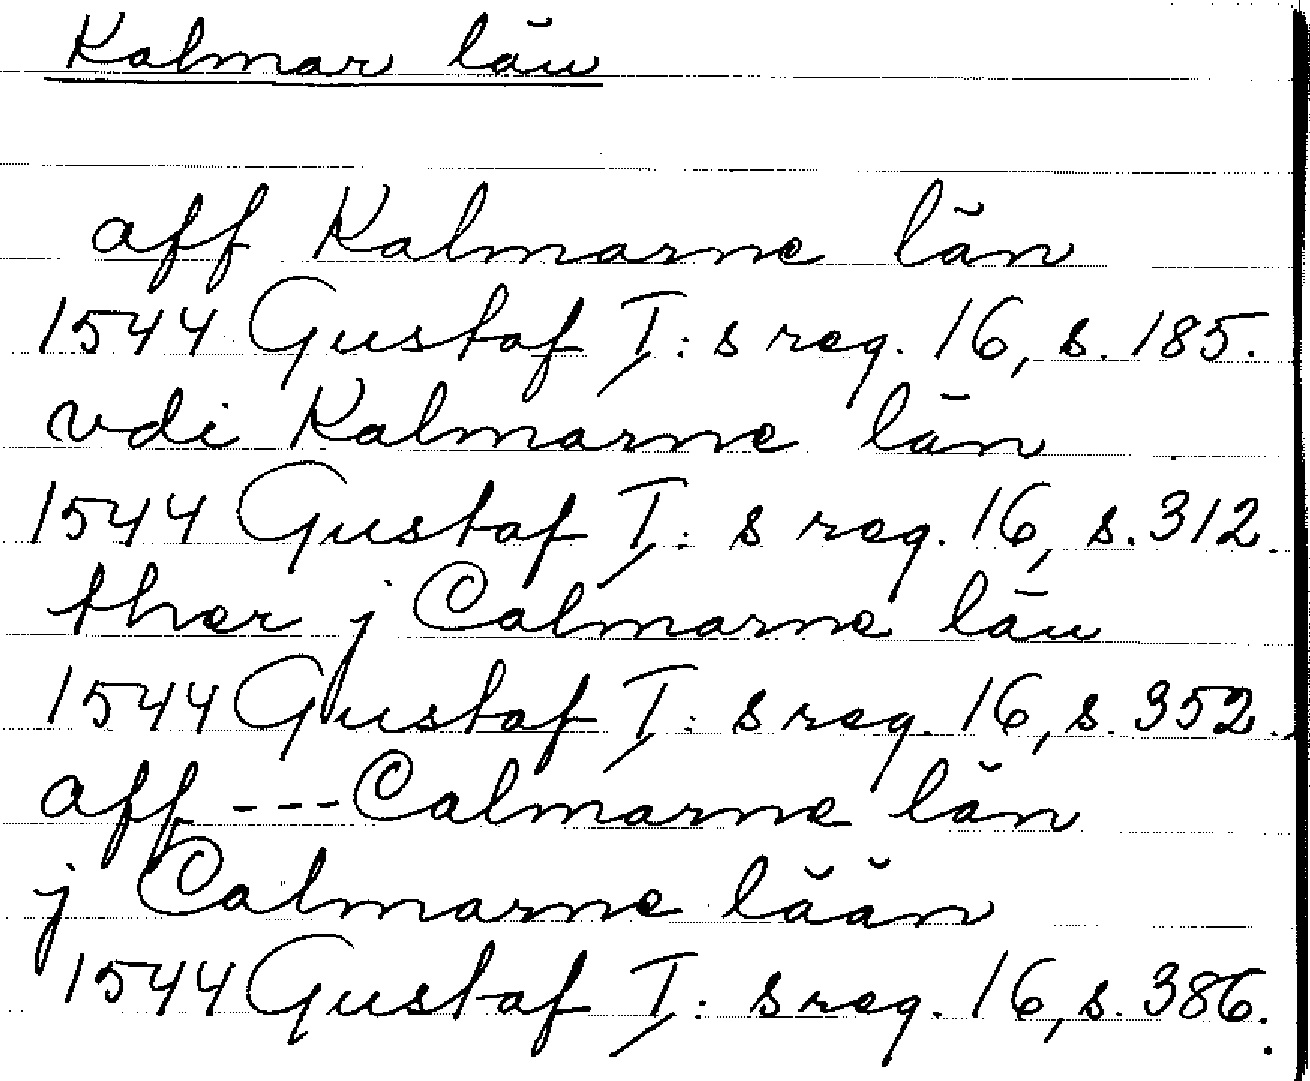 Kalmar län
aff Kalmarne län
1544 Gustaf I:s reg. 16, s. 185.
vdi Kalmarne län
1544 Gustaf I:s reg. 16, s. 312.
ther j Calmarne län
1544 Gustaf I:s reg. 16, s. 352.
aff --- Calmarne län
j Calmarne lään
1544 Gustaf I:s reg. 16, s. 386.